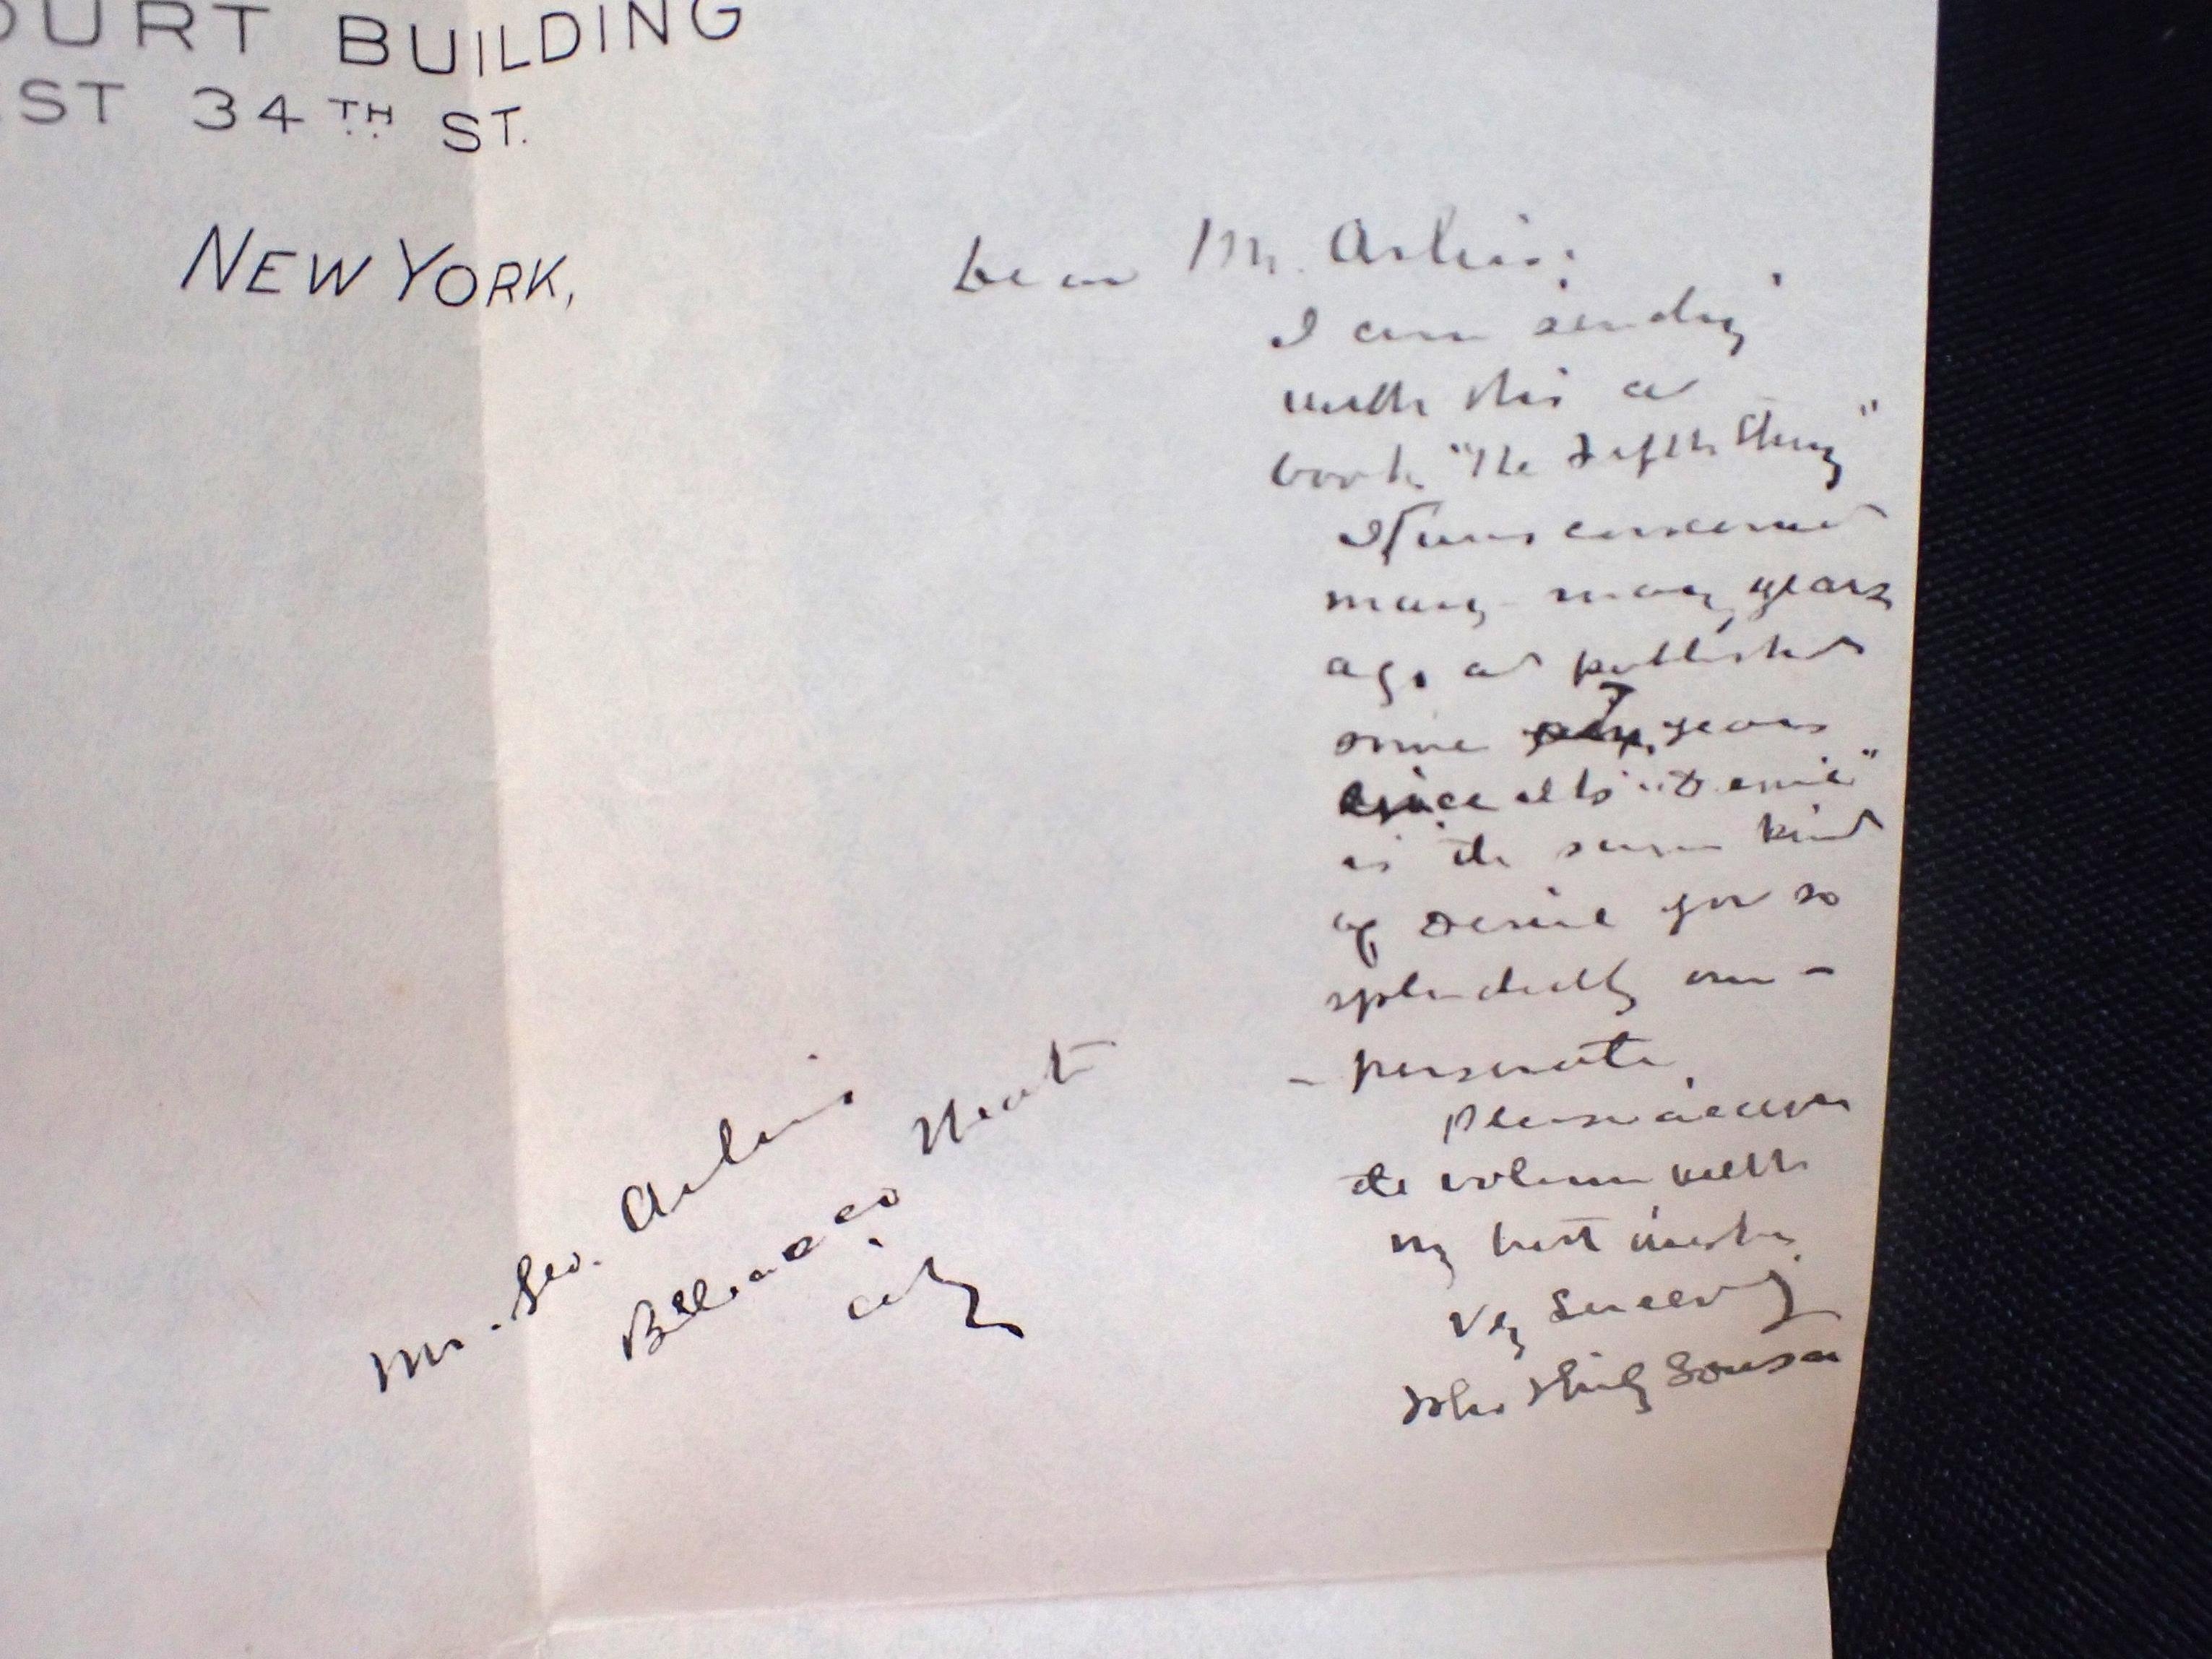 OURT BUILDING
EST 34TH ST.
NEW YORK,
Dear Mr. Arliss:
I am sending
with this a
book "The Fifth String"
It was conceived
many many years
ago and published
some years
since. Its "Devil"
is the same kind
of Devil you so
splendidly im-
-personate.
Please accept
the volume with
my best wishes.
Very Sincerely
John Philip Sousa
Mr. Geo. Arliss
Belasco Theat
City